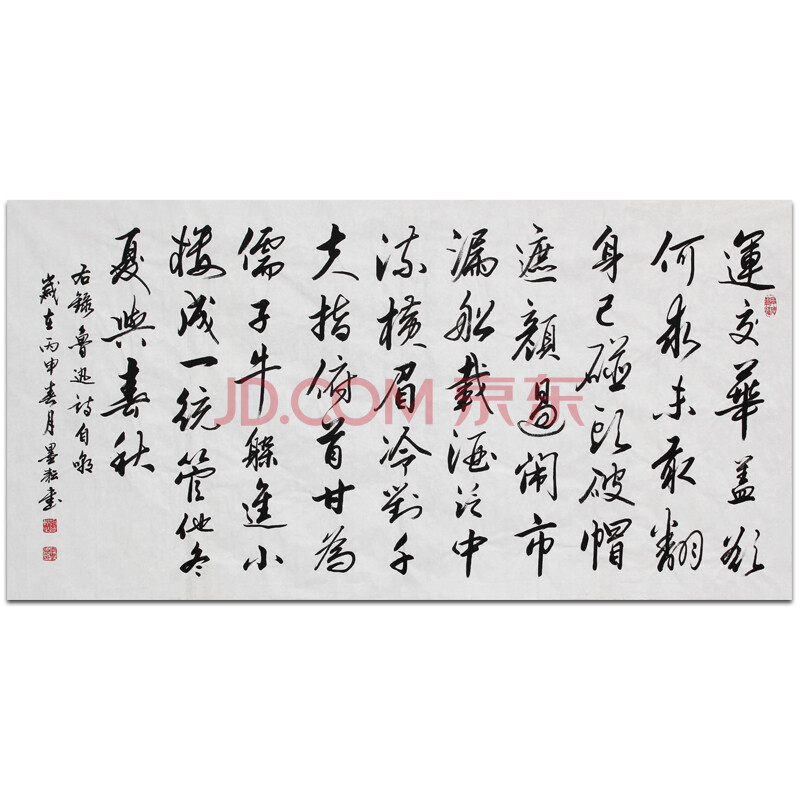 運交華蓋欲
何求未敢翻
身已碰頭破帽
遮顏過鬧市
漏船載酒泛中
流橫眉冷對千
夫指俯首甘為
儒子牛躲進小
樓成一統管他冬
夏與春秋
右錄魯迅詩自嘲
歲在丙申春月墨松書
JD.COM 京东